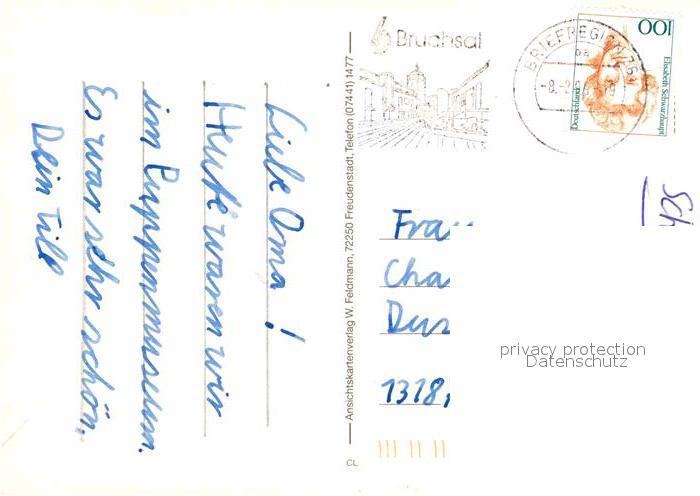 Liebe Oma!
Heute waren wir
im Puppenmuseum.
Es war sehr schön.
Dein Till
Ansichtskartenverlag W. Feldmann, 72250 Freudenstadt, Telefon (07441) 1477
CL
Bruchsal
BRIEFREGION 76
100
Elisabeth Schwarzhaupt
Deutschland
Sch
Fra
Cha
Dus
1318,
privacy protection
Datenschutz